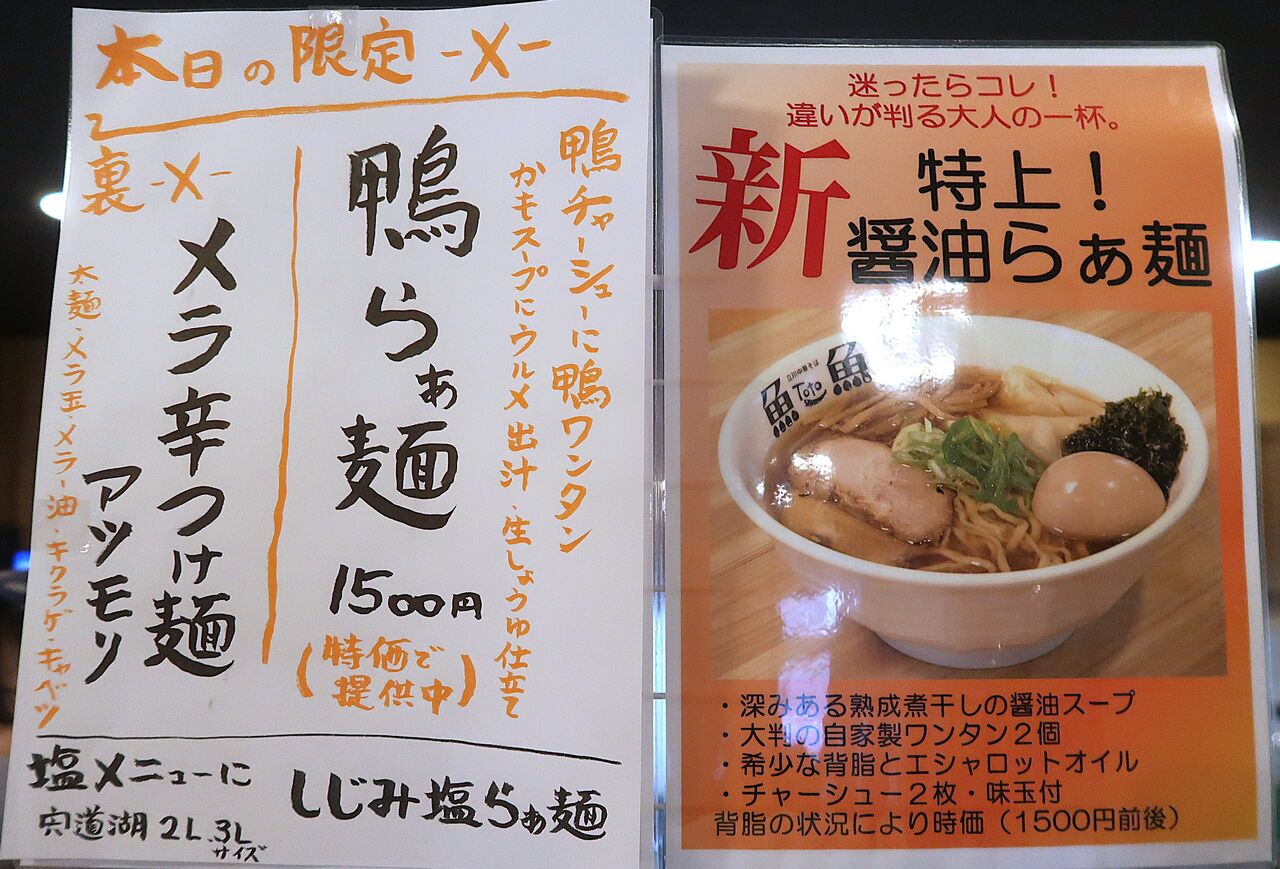 本日の限定 -メ-
鴨チャーシューに鴨ワンタン
かもスープにウルメ出汁・生しょうゆ仕立て
鴨らぁ麺
1500円
(特価で
提供中)
裏 -メ-
メラ辛つけ麺
アツモリ
太麺・メラ玉・メラー油・キクラゲ・キャベツ
塩メニューに
しじみ塩らぁ麺
宍道湖2L.3L
サイズ
迷ったらコレ!
違いが判る大人の一杯。
新
特上!
醤油らぁ麺
立川中華そば
魚 Toto 魚
・深みある熟成煮干しの醤油スープ
・大判の自家製ワンタン2個
・希少な背脂とエシャロットオイル
・チャーシュー2枚・味玉付
背脂の状況により時価(1500円前後)